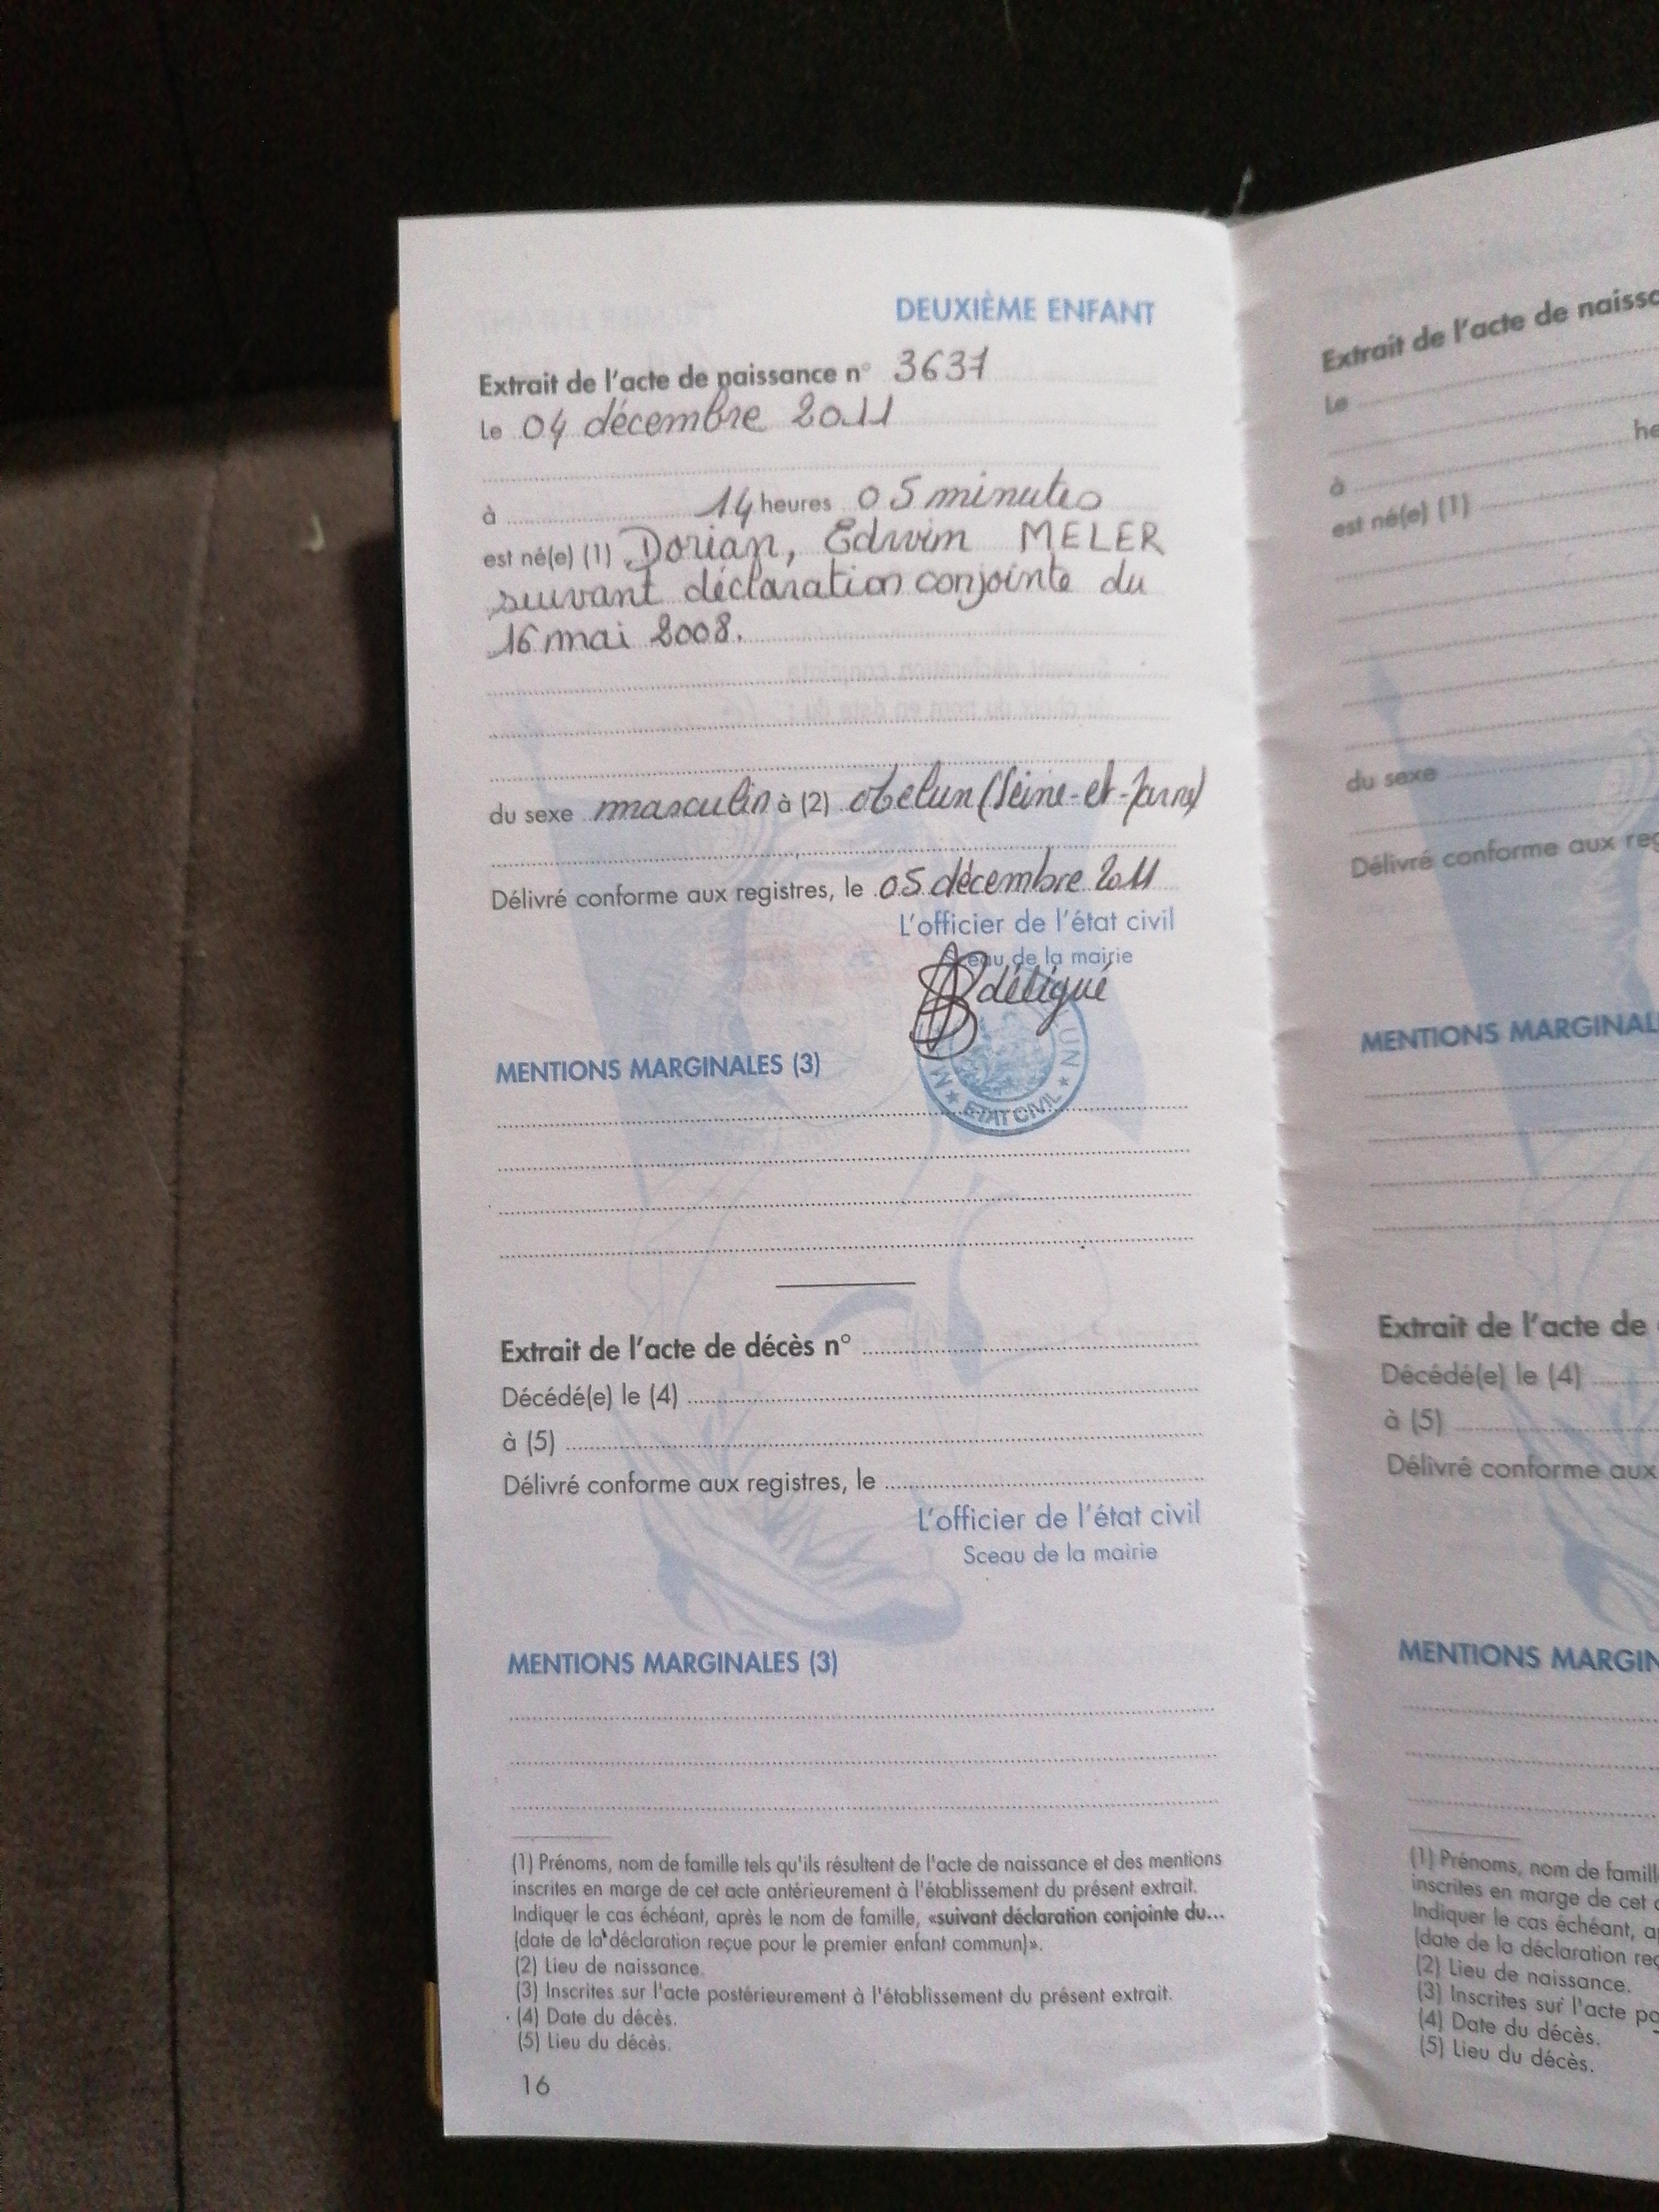 DEUXIÈME ENFANT
Extrait de l'acte de naissance n° 3631
Le 04 décembre 2011
à 14 heures 05 minutes
est né(e) (1) Dorian, Edwin MELER
suivant déclaration conjointe du
16 mai 2008.
du sexe masculin à (2) Melun (Seine-et-Marne)
Délivré conforme aux registres, le 05 décembre 2011
L'officier de l'état civil
de la mairie
délégué
ETAT CIVIL
MENTIONS MARGINALES (3)
Extrait de l'acte de décès n°
Décédé(e) le (4)
à (5)
Délivré conforme aux registres, le
L'officier de l'état civil
Sceau de la mairie
MENTIONS MARGINALES (3)
(1) Prénoms, nom de famille tels qu'ils résultent de l'acte de naissance et des mentions
inscrites en marge de cet acte antérieurement à l'établissement du présent extrait.
Indiquer le cas échéant, après le nom de famille, «suivant déclaration conjointe du...
(date de la déclaration reçue pour le premier enfant commun)».
(2) Lieu de naissance.
(3) Inscrites sur l'acte postérieurement à l'établissement du présent extrait.
(4) Date du décès.
(5) Lieu du décès.
16
Extrait de l'acte de naissa
Le
he
à
est né(e) (1)
du sexe
Délivré conforme aux reg
MENTIONS MARGINAL
Extrait de l'acte de
Décédé(e) le (4)
à (5)
Délivré conforme aux
MENTIONS MARGIN
(1) Prénoms, nom de famill
inscrites en marge de cet a
Indiquer le cas échéant, ap
(date de la déclaration reç
(2) Lieu de naissance.
(3) Inscrites sur l'acte po
(4) Date du décès.
(5) Lieu du décès.